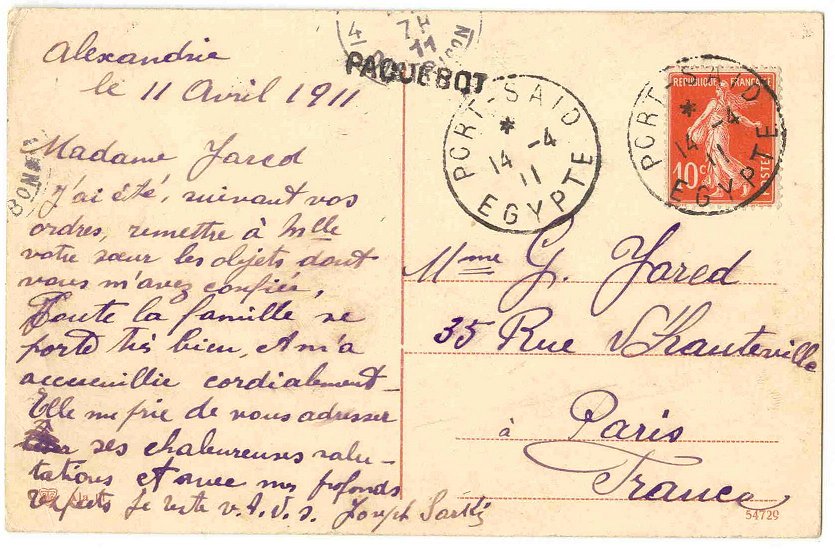 Alexandrie
le 11 Avril 1911
Madame Jared
J'ai été, suivant vos
ordres, remettre à Mlle
votre sœur les objets dont
vous m'avez confiée,
Toute la famille se
porte très bien, et m'a
accueuillie cordialement
Elle me prie de vous adresser
ses chaleureuses salu-
tations et avec mes profonds
respects je reste v. t. d. s. Joseph Sarkis
4
7H
11
PAQUEBOT
PORT-SAID
*
14 -4
11
EGYPTE
PORT-SAID
*
14 -4
11
EGYPTE
REPUBLIQUE FRANÇAISE
10c
POSTES
Mme G. Jared
35 Rue d'Hauteville
à Paris
France
54729